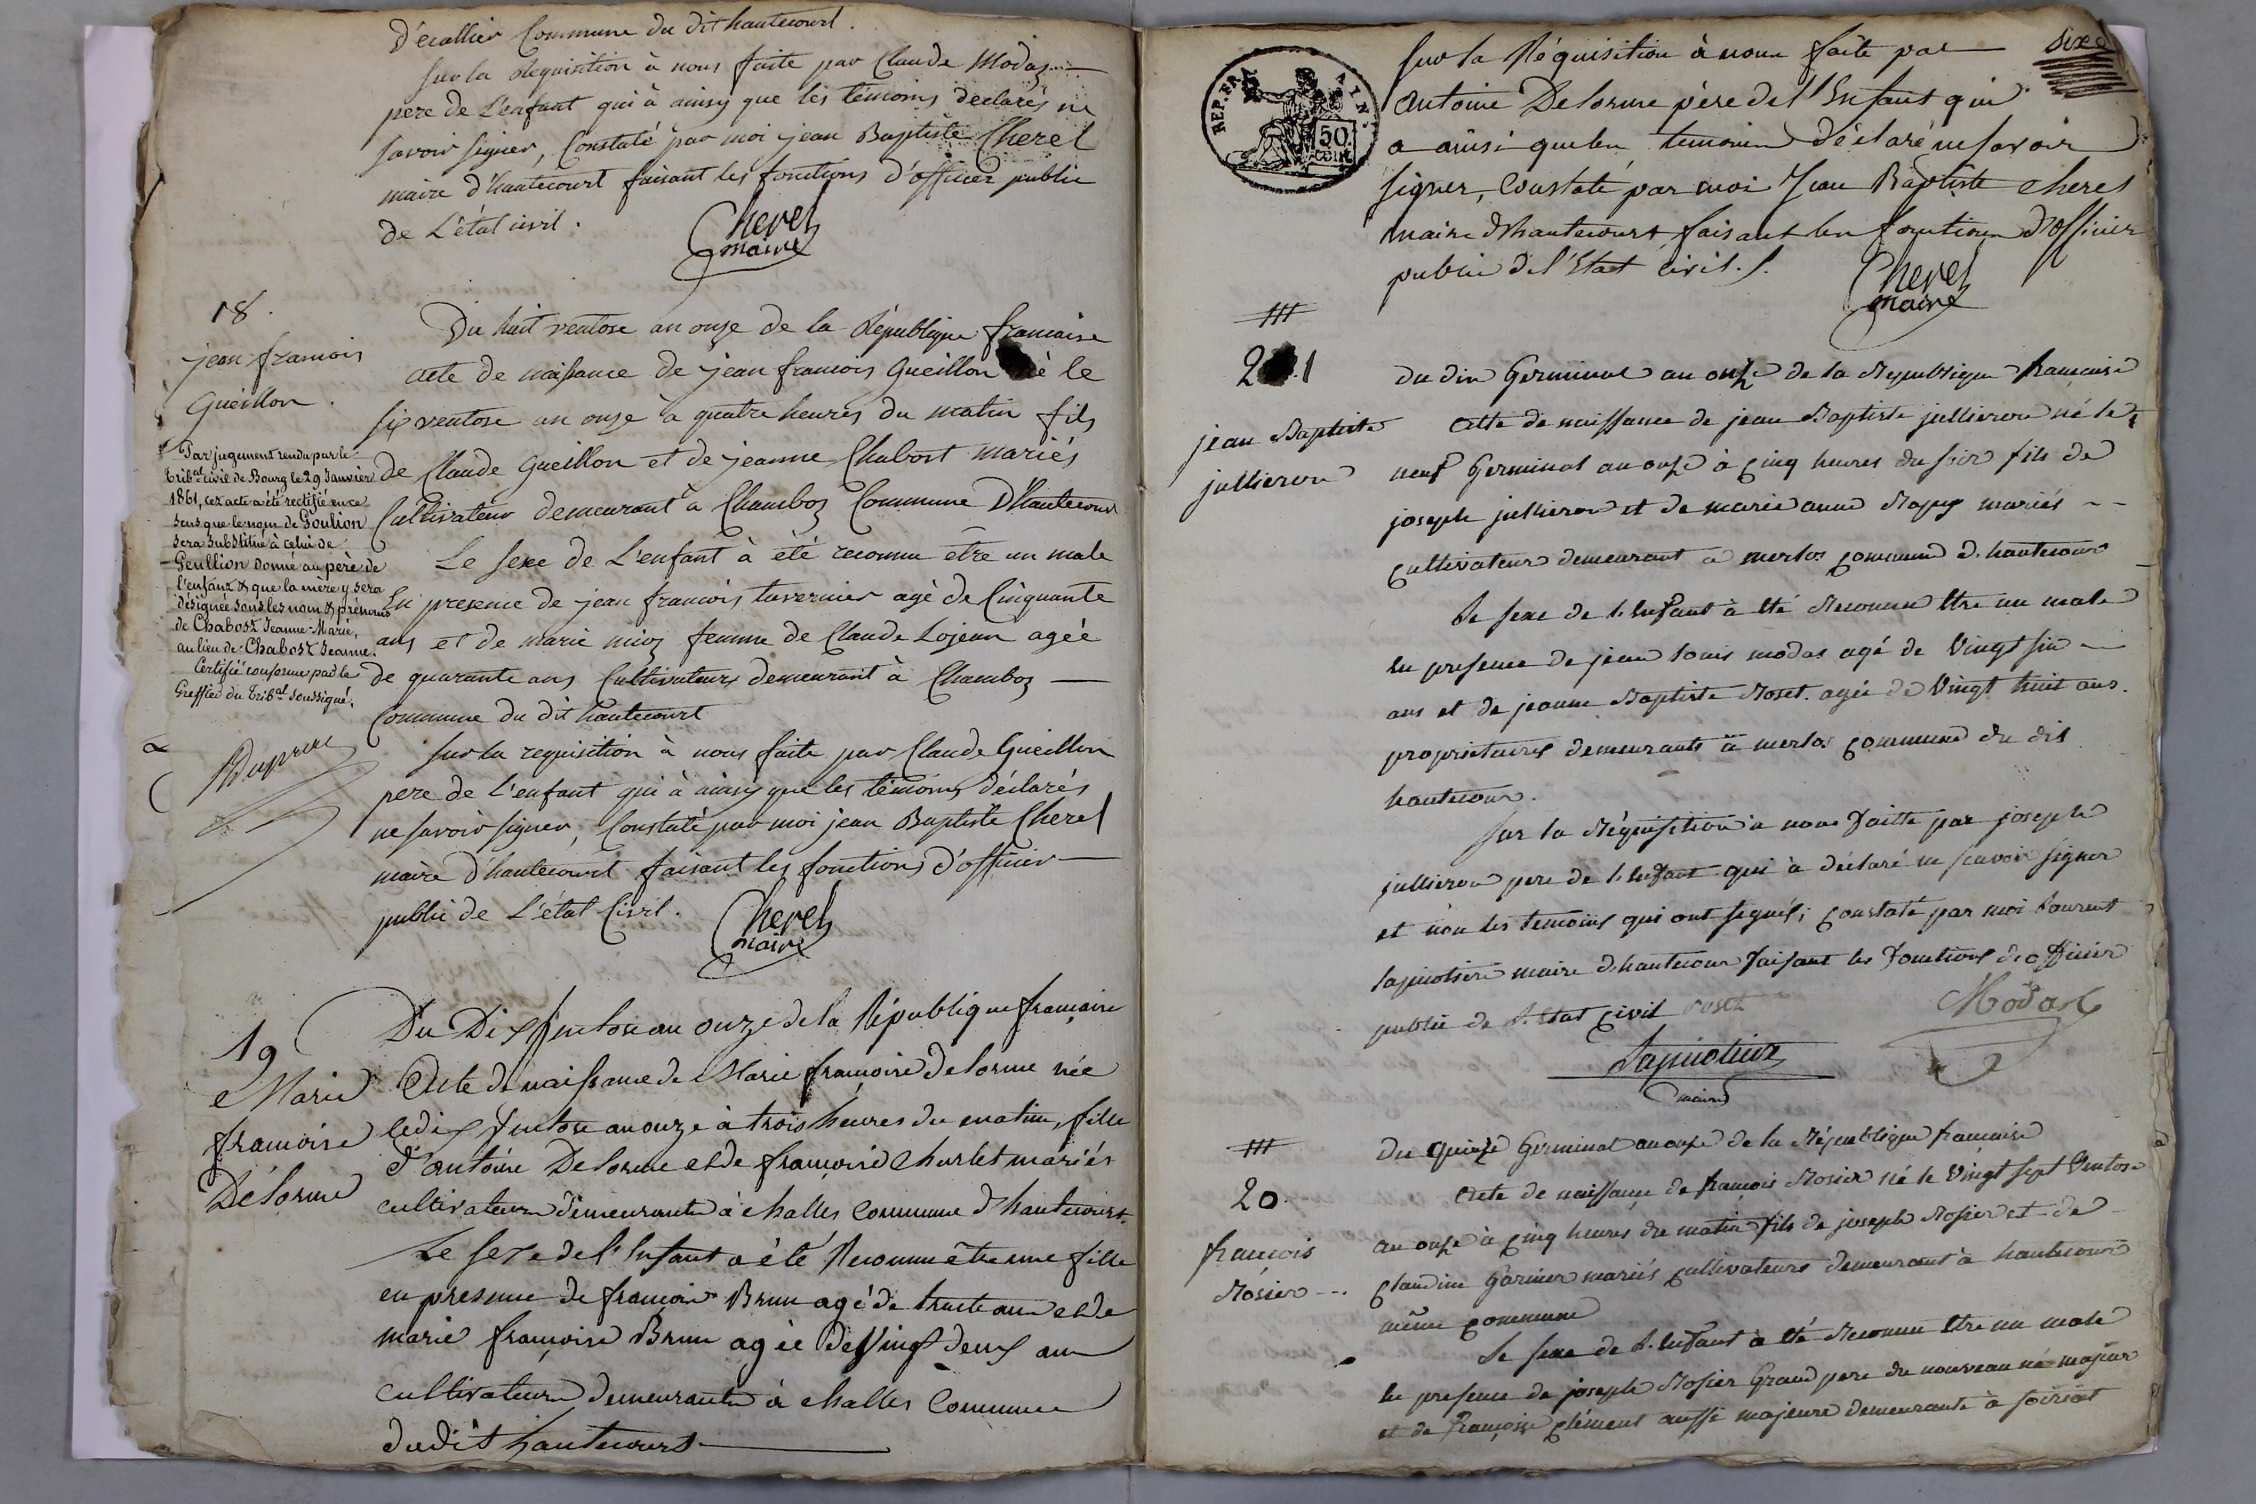 d'écallier Commune du dit hautecourt.
sur la requisition à nous faite par Claude Modaz
pere de L'enfant qui à ainsy que les témoins declarés ne
savoir signer, Constaté par moi jean Baptiste Cherel
maire d'hautecourt faisant les fonctions d'officier public
de L'état civil.
Cherel
maire
18.
jean francois
Gueillon.
Du huit ventose an onze de la République francaise
acte de naissance de jean francois Gueillon né le
six ventose an onze à quatre heures du matin fils
de Claude Gueillon et de jeanne Chabost mariés
Cultivateur demeurant à Chamboz Commune D'hautecourt
Le sexe de L'enfant à été reconnu etre un male
En presence de jean francois tavernier agé de Cinquante
ans et de marie mioz femme de Claude Lojean agée
de quarante ans Cultivateurs demeurant à Chamboz
Commune du dit hautecourt
sur la requisition à nous faite par Claude Gueillon
pere de L'enfant qui à ainsy que les témoins déclarés
ne savoir signer, Constaté par moi jean Baptiste Cherel
maire d'hautecourt faisant les fonctions d'officier
public de L'état Civil.
Cherel
maire
Par jugement rendu par le
trib.al civil de Bourg le 29 Janvier
1861, cet acte a été rectifié en ce
sens que le nom de Goulion
sera substitué à celui de
Geullion donné au père de
l'enfant & que la mère y sera
désignée sous les nom & prénoms
de Chabost Jeanne-Marie,
au lieu de Chabost Jeanne.
Certifié conforme par le
Greffier du trib.al soussigné.
19
Marie
francoise
Délorme
Du Dix Ventose an onze de la République française
Acte de naissance de Marie françoise Delorme née
le dix Ventose an onze à trois heures du matin, fille
d'antoine Delorme et de françoise Charlet mariés
cultivateurs demeurants à challes Commune d'hautecourt.
Le sexe de l'Enfant a été Reconnu être une fille
en presence de francois Brun agé de trente ans et de
marie françoise Brun agée de Vingt deux ans
cultivateurs demeurants à challes Commune
dudit hautecourt
REP. FRA.
AIN.
50.
CENT.
Sixe
sur la Réquisition à nous faite par
antoine Delorme père de l'Enfant qui
a ainsi que les temoins déclaré ne savoir
signer, Constaté par moi Jean Baptiste cherel
maire d'hautecourt faisant les fonctions d'officier
public de l'Etat civil.
Cherel
maire
2 1
jean Baptiste
jullieron
du dix Germinal an onze de la Republique francaise
acte de naissance de jean Baptiste jullieron né le
neuf Germinal an onze à cinq heures du soir fils de
joseph jullieron et de marie anne Rapy mariés
cultivateurs demeurant à merloz commune d'hautecour
Le sexe de l'enfant à été Reconnu etre un male
en presence de jean louis modas agé de Vingt six
ans et de jeanne Baptiste Roset agée de Vingt huit ans.
proprietaires demeurants à merloz commune du dit
hautecour.
sur la Réquisition à nous faitte par joseph
jullieron pere de l'enfant qui à déclaré ne scavoir signer
et non les temoins qui ont signés; constaté par moi Laurent
lapierre maire d'hautecour faisant les fonctions d'officier
public de l'Etat civil roset
Modas
maire
20
francois
Rosier
du Quinze Germinal an onze de la République francaise
acte de naissance de françois Rosier né le Vingt sept Ventose
an onze à cinq heures du matin fils de joseph Rosier et de
claudine Garnier mariés cultivateurs demeurant à hautecour
même commune
Le sexe de l'enfant à été Reconnu etre un male
en presence de joseph Rosier Grand pere du nouveau né majeur
et de françoise clément aussi majeure demeurants à soiriat